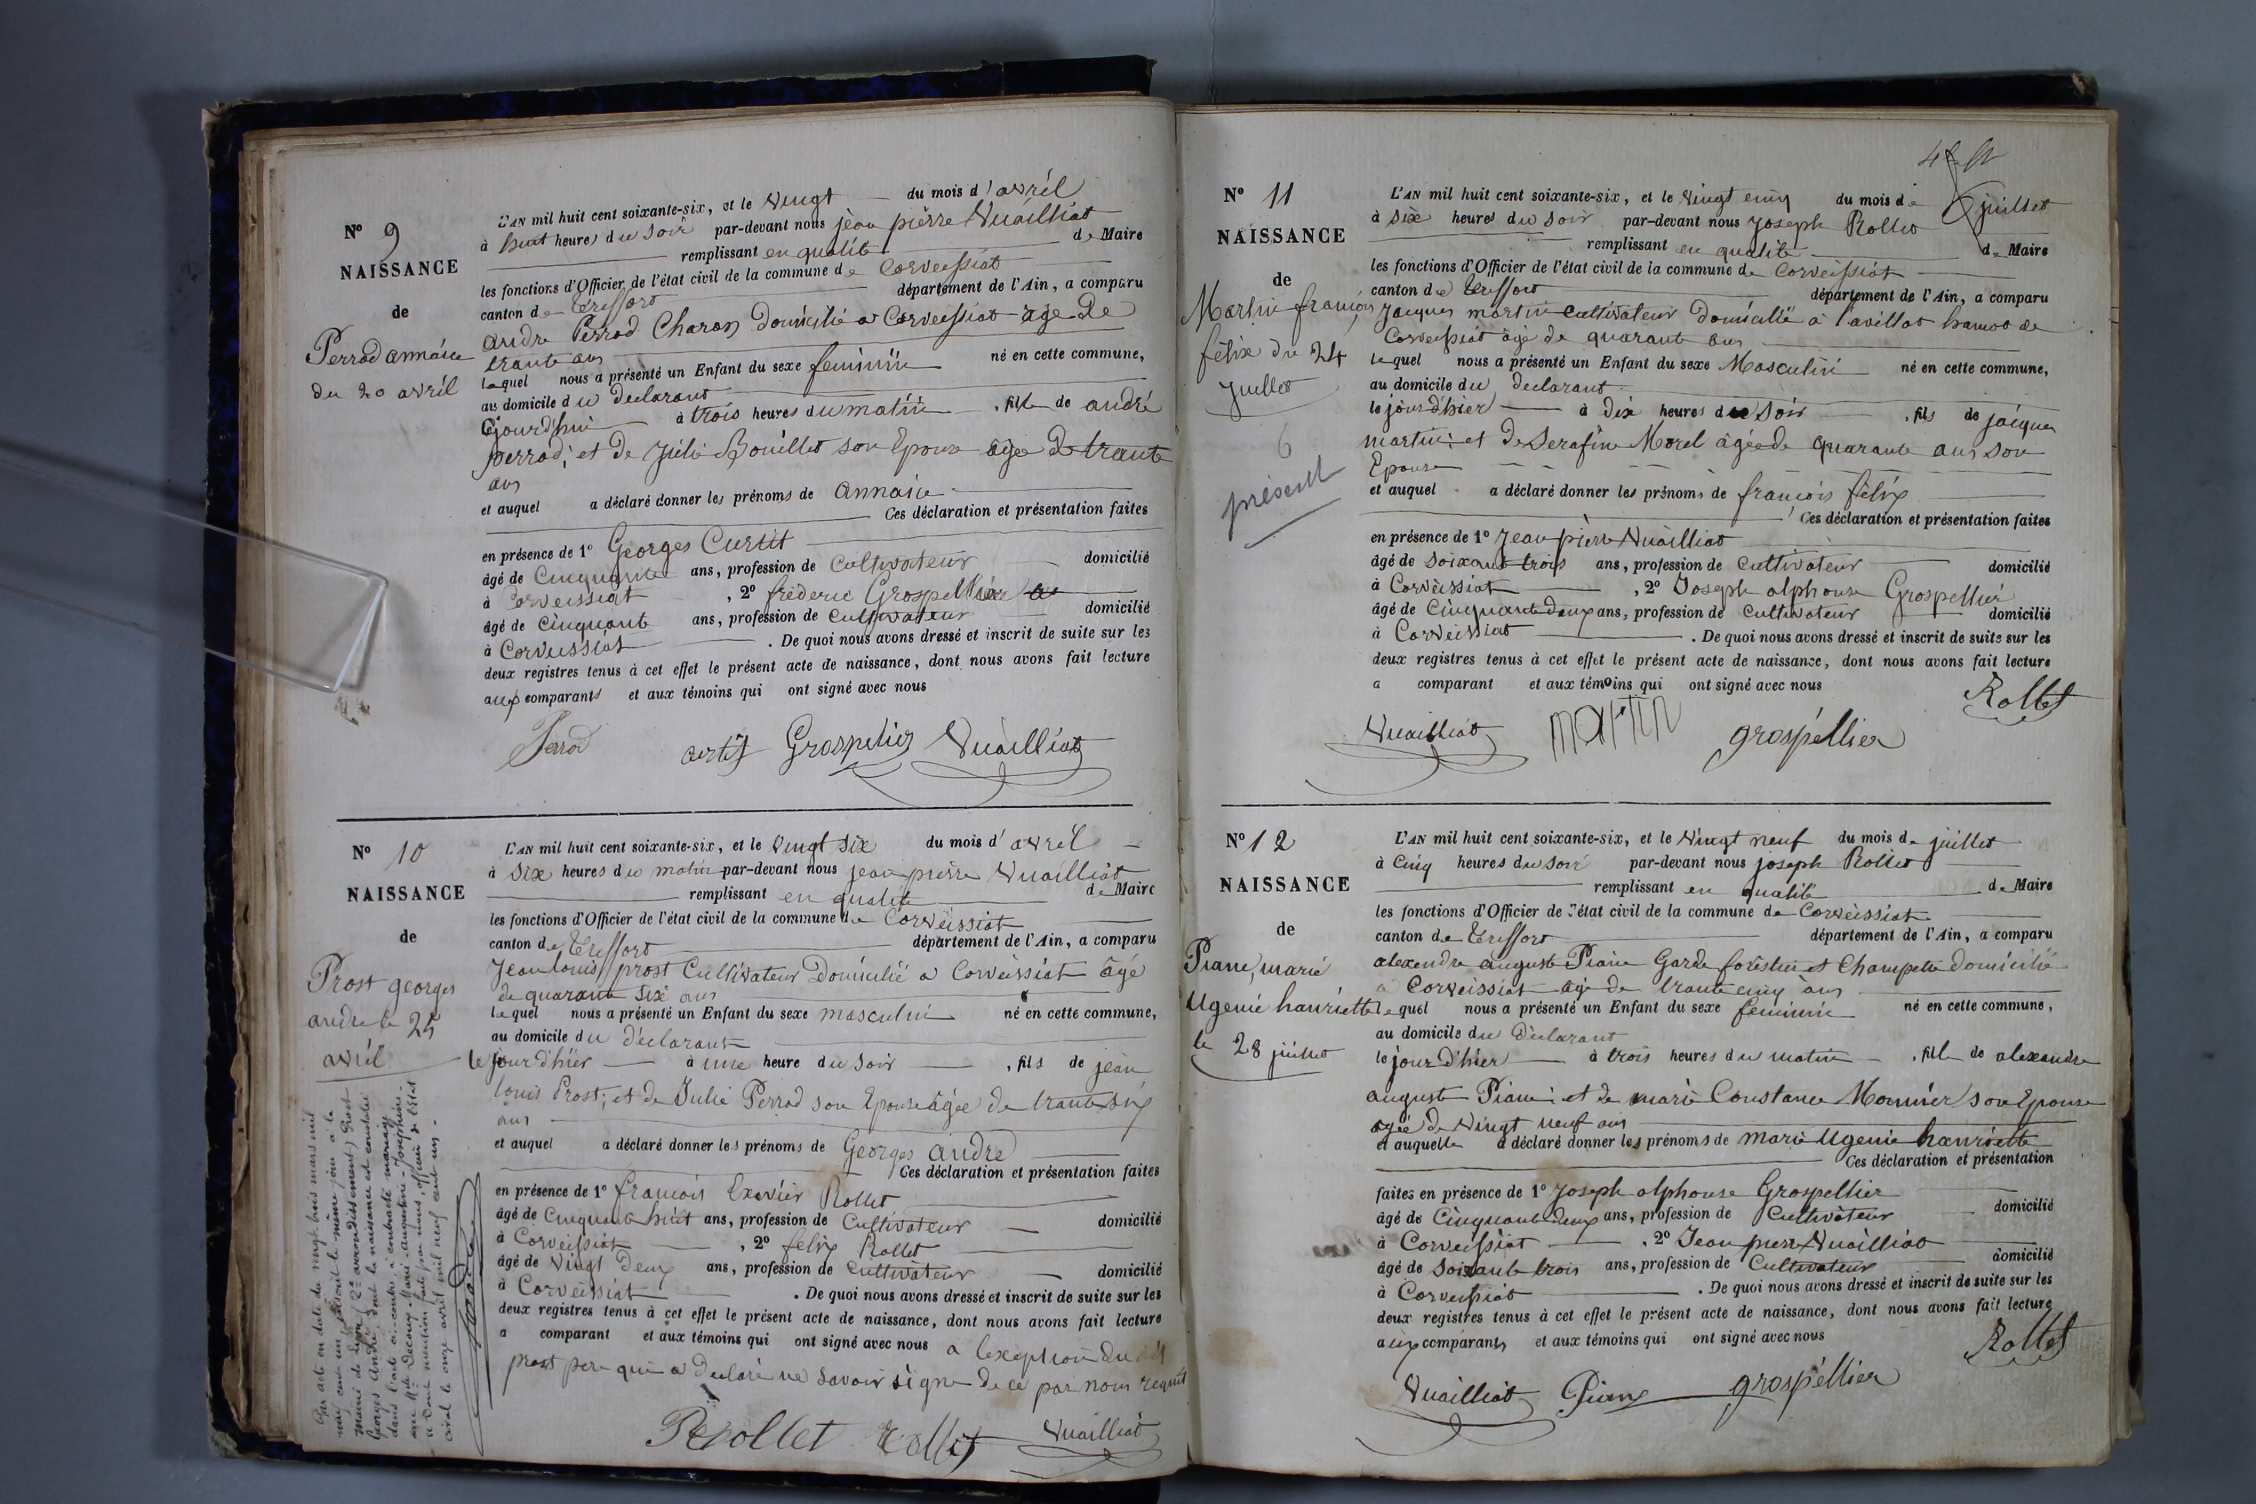 N° 9
NAISSANCE
de
Perrod annaïse
du 20 avril
L'AN mil huit cent soixante-six, et le vingt du mois d'avrél
à huit heures du soir par-devant nous jean pièrre Nuailliat
remplissant en qualité de Maire
les fonctions d'Officier de l'état civil de la commune de Corveissiat
canton de Treffort département de l'Ain, a comparu
andre Perrod Charon Domicilié a Corveissiat age De
trante ans
lequel nous a présenté un Enfant du sexe feminin né en cette commune,
au domicile du Declarant
cejourd'hui à trois heures du matin, fille de andré
perrod; et de Julie Bouillet son Epouse âgée De trante
ans
et auquel a déclaré donner les prénoms de annaise
Ces déclaration et présentation faites
en présence de 1° Georges Curtit
âgé de Cinquante ans, profession de Cultivateur domicilié
à Corveissiat, 2° fréderic Grospellier
âgé de cinquante ans, profession de Cultivateur domicilié
à Corveissiat. De quoi nous avons dressé et inscrit de suite sur les
deux registres tenus à cet effet le présent acte de naissance, dont nous avons fait lecture
aux comparants et aux témoins qui ont signé avec nous
Perrod Curtit Grospelier Nuailliat
N° 10
NAISSANCE
de
Prost georges
andre le 25
avril
L'AN mil huit cent soixante-six, et le vingt six du mois d'avrél
à six heures du matin par-devant nous jean pierre Nuailliat
remplissant en qualité de Maire
les fonctions d'Officier de l'état civil de la commune de Corveissiat
canton de Treffort département de l'Ain, a comparu
Jean louis prost Cultivateur Domicilié a Corveissiat âgé
de quarante six ans
lequel nous a présenté un Enfant du sexe masculin né en cette commune,
au domicile du déclarant
le jour d'hier à une heure du soir, fils de jean
louis Prost; et de Julie Perrod son Epouse âgée de trante six
ans
et auquel a déclaré donner les prénoms de Georges andré
Ces déclaration et présentation faites
en présence de 1° francois Exavier Rollet
âgé de Cinquante huit ans, profession de Cultivateur domicilié
à Corveissiat, 2° félix Rollet
âgé de vingt Deux ans, profession de Cultivateur domicilié
à Corveissiat. De quoi nous avons dressé et inscrit de suite sur les
deux registres tenus à cet effet le présent acte de naissance, dont nous avons fait lecture
a comparant et aux témoins qui ont signé avec nous a lexeption du dit
prost pere qui a declaré ne savoir signe de ce par nous requit
Rollet Rollet Nuailliat
Par acte en date du vingt-trois mars mil
neuf cent un, inscrit le même jour à la
mairie de Lyon (2e arrondissement) Prost
Georges André, dont la naissance est constatée
dans l'acte ci-contre, a contracté mariage
avec Mlle Marie Joséphine
Dont mention faite par nous, officier de l'état
civil le onze avril mil neuf cent un.
N° 11
NAISSANCE
de
Martin françois
félix du 24
Juillet
6
présent
L'AN mil huit cent soixante-six, et le vingt cinq du mois de juillet
à six heures du soir par-devant nous Joseph Rollet
remplissant en qualité de Maire
les fonctions d'Officier de l'état civil de la commune de Corveissiat
canton de Treffort département de l'Ain, a comparu
Jacques martin Cultivateur Domicilié à l'avillat hamot de
Corveissiat âgé de quarante ans
lequel nous a présenté un Enfant du sexe Masculin né en cette commune,
au domicile du declarant
le jour d'hier à dix heures du soir, fils de jacques
martin: et De Serafine Morel âgée de quarante ans son
Epouse
et auquel a déclaré donner les prénoms de francois félix
Ces déclaration et présentation faites
en présence de 1° Jean pierre Nuailliat
âgé de soixante trois ans, profession de cultivateur domicilié
à Corvèissiat, 2° Joseph alphonse Grospellier
âgé de Cinquante Deux ans, profession de cultivateur domicilié
à Corveissiat. De quoi nous avons dressé et inscrit de suite sur les
deux registres tenus à cet effet le présent acte de naissance, dont nous avons fait lecture
a comparant et aux témoins qui ont signé avec nous
Rollet
Nuailliat martin grospéllier
N° 12
NAISSANCE
de
Piane, marie
Ugenie hanriette
le 28 juillet
L'AN mil huit cent soixante-six, et le vingt neuf du mois de juillet
à cinq heures du soir par-devant nous joseph Rollet
remplissant en qualité de Maire
les fonctions d'Officier de l'état civil de la commune de Corveissiat
canton de Treffort département de l'Ain, a comparu
alexendre auguste Piane Garde forêstier et Champetre domicilié
a Corveissiat age de trante cinq ans
lequel nous a présenté un Enfant du sexe feminin né en cette commune,
au domicile du déclarant
le jour d'hier à trois heures du matin, fille de alexandre
auguste Piane; et de marie Constance Monnier son Epouse
agée de vingt neuf ans
et auquelle a déclaré donner les prénoms de marie Ugenie hanriette
Ces déclaration et présentation
faites en présence de 1° Joseph alphonse Grospellier
âgé de Cinquante deux ans, profession de Cultivateur domicilié
à Corveissiat, 2° Jean pierre Nuailliat
âgé de soixante trois ans, profession de Cultivateur domicilié
à Corveissiat. De quoi nous avons dressé et inscrit de suite sur les
deux registres tenus à cet effet le présent acte de naissance, dont nous avons fait lecture
aux comparants et aux témoins qui ont signé avec nous
Rollet
Nuailliat Piane grospéllier